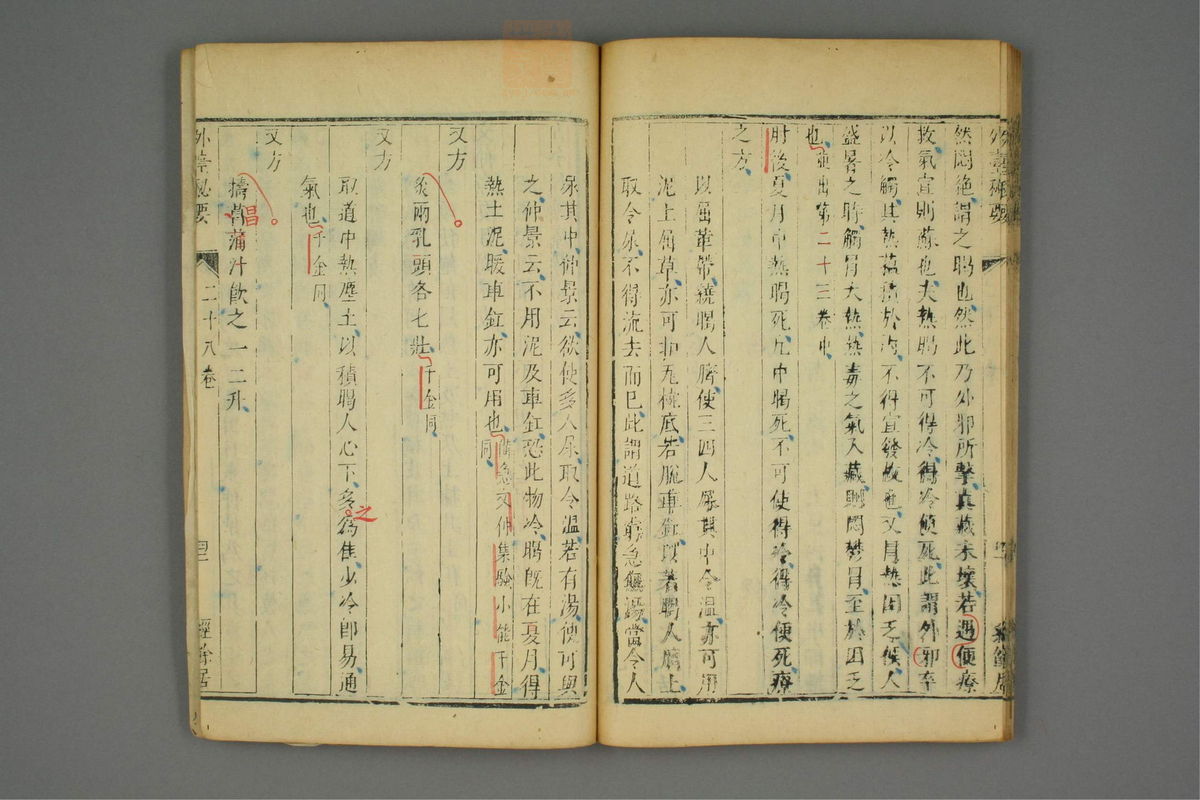 外臺秘要
然悶絶謂之暍也然此乃外邪所擊真藏未壞若遇便療
救氣宣則蘇也夫熱暍不可得冷得冷便死此謂外邪卒
以冷觸其熱蘊積於内不得宣發故也又冒熱困乏候人
盛暑之時觸冒大熱熱毒之氣入藏則悶鬱冒至於困乏
也並出第二十三卷中
肘後夏月中熱暍死凡中暍死不可使得冷得冷便死療
之方
以屈革帶繞暍人臍使三四人尿其中令溫亦可用
泥土屈草亦可扣瓦椀底若脫車釭以着暍人臍上
取令尿不得流去而已此謂道路窮急無湯當令人
尿其中仲景云欲使多人尿取令溫若有湯便可與
之仲景云不用泥及車釭恐此物冷暍既在夏月得
熱土泥暖車釭亦可用也備急文仲集驗小品千金
同
又方
灸兩乳頭各七壯千金同
又方
取道中熱塵土以積暍人心下多爲佳少冷即易通
之
氣也千金同
又方
擣菖蒲汁飲之一二升
昌
外臺秘要
二十八卷
經餘居